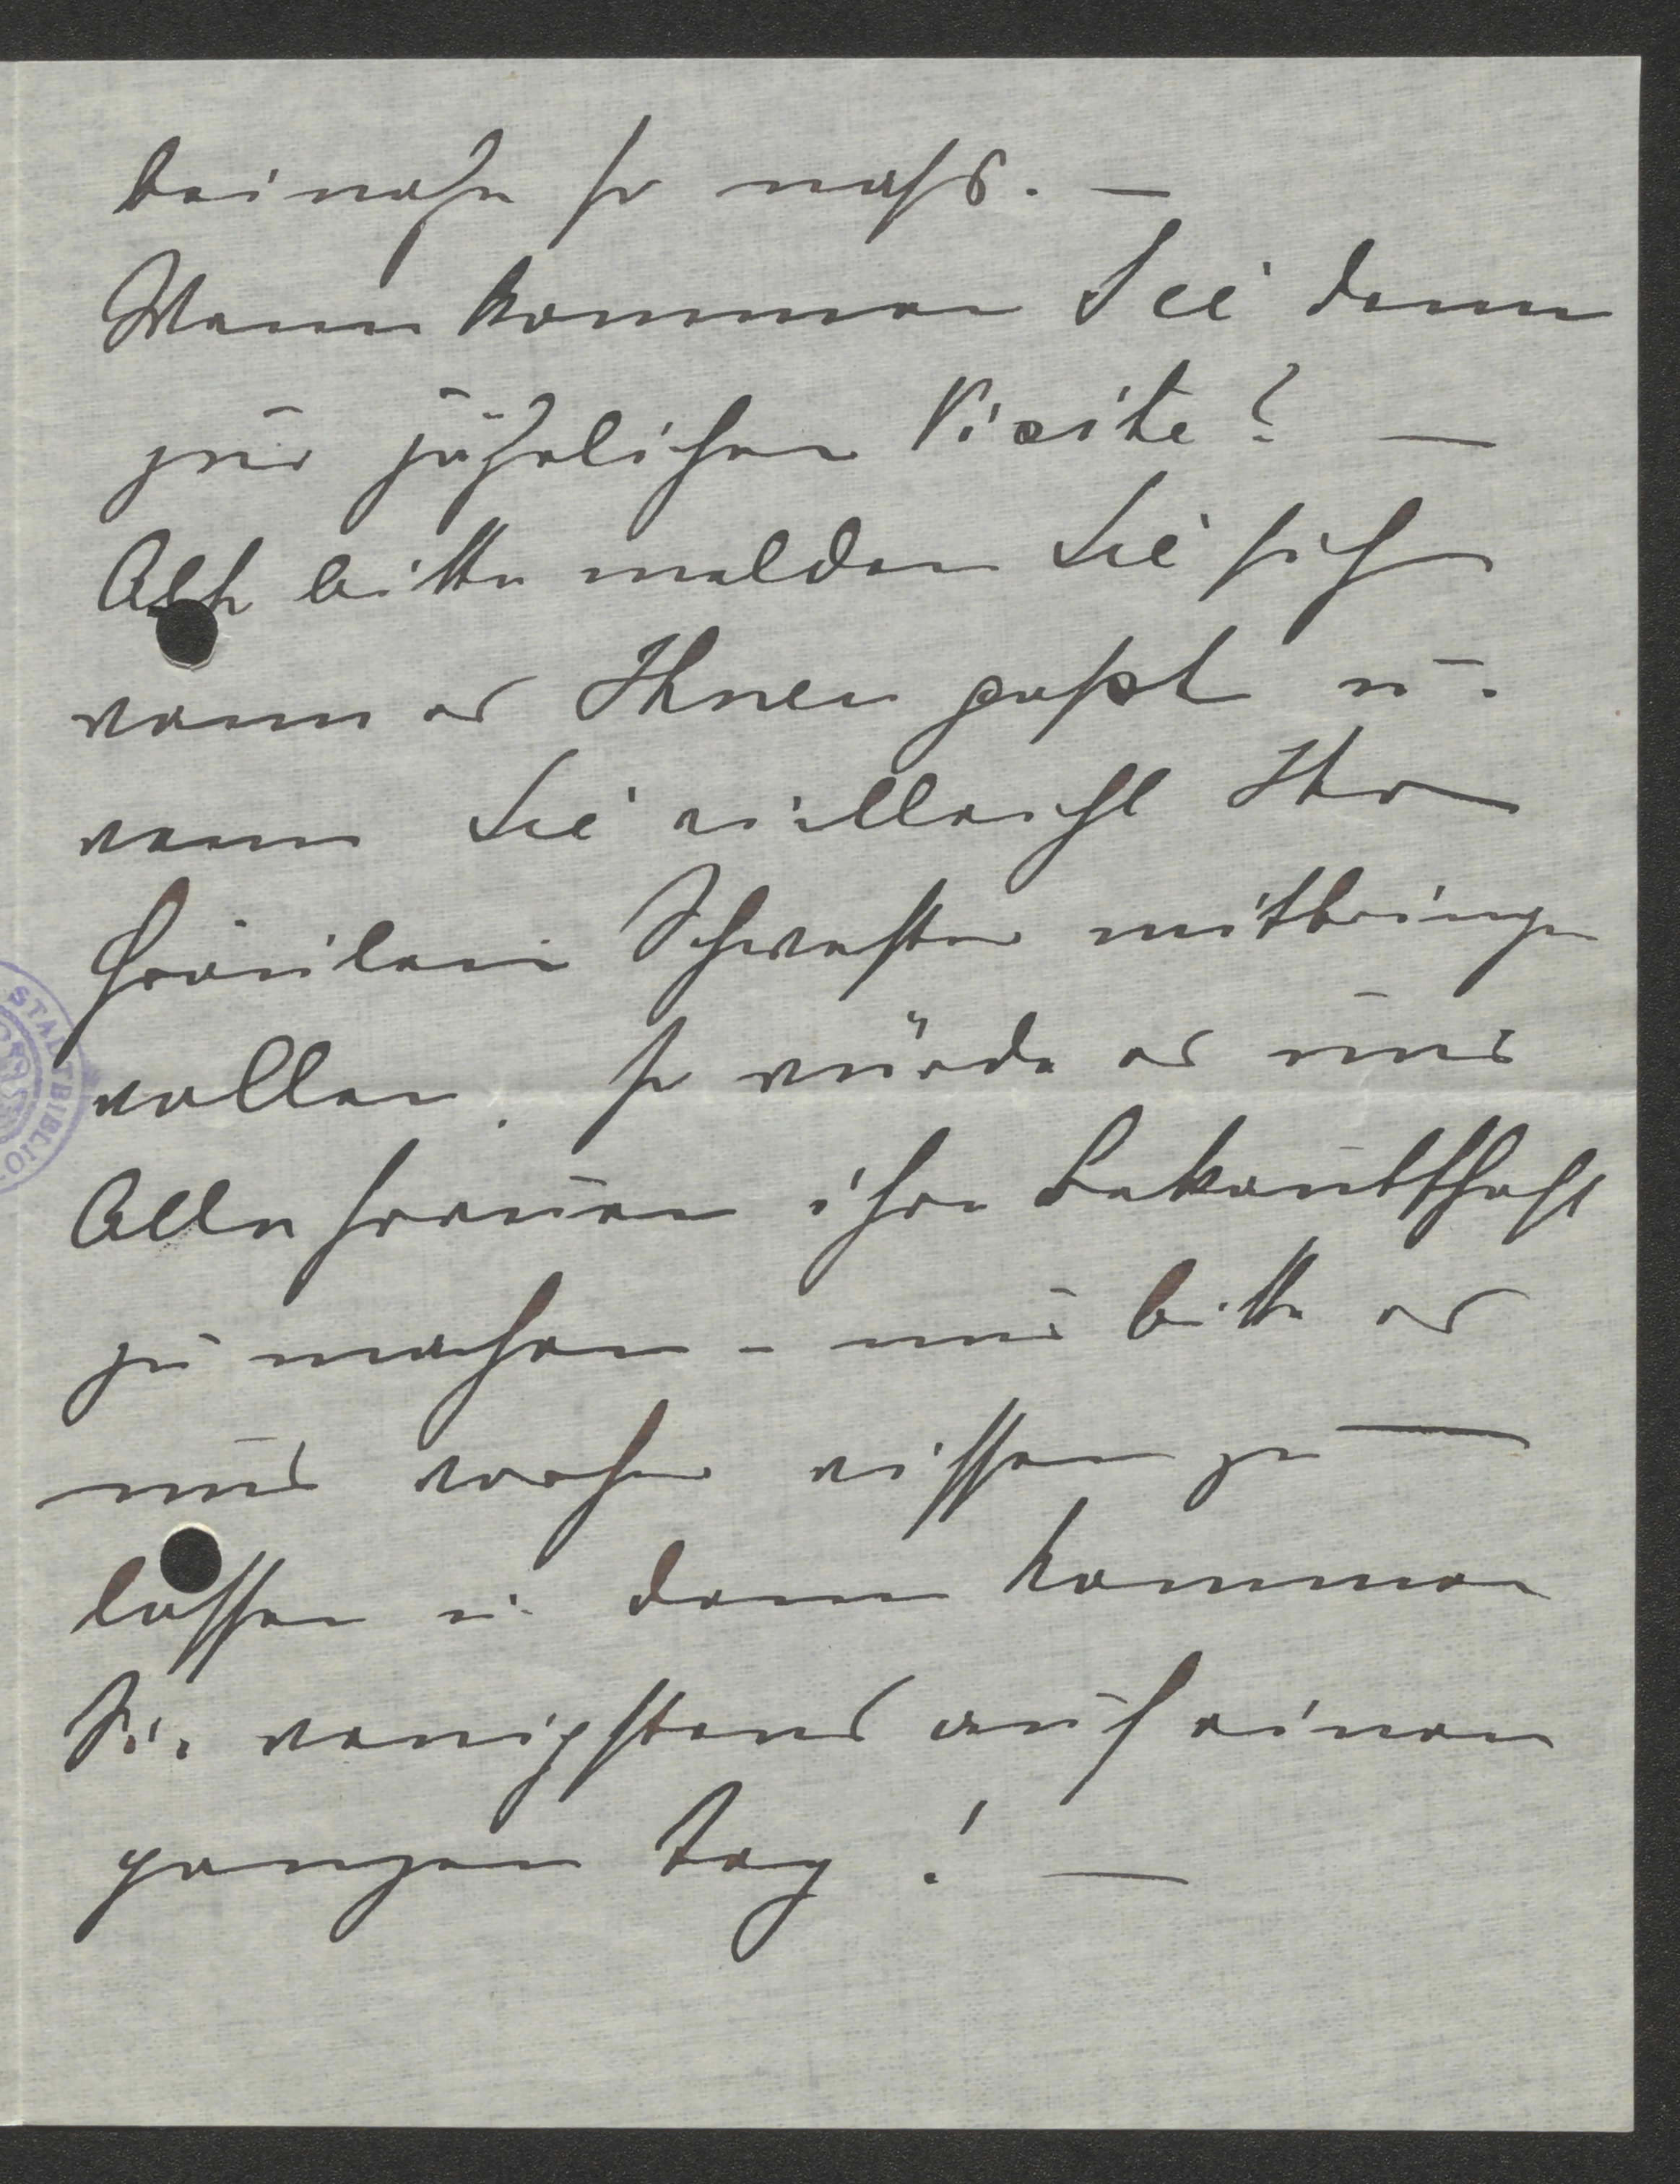 beinahe so nass. —
Wann kommen Sie denn
zur jährlichen Visite? —
Also bitte melden Sie sich
wann es Ihnen passt u.
wenn Sie vielleicht Ihr
Fräulein Schwester mitbringen
wollen, so würde es uns
Alle freuen ihre Bekantschaft
zu machen – nur bitte es
uns vorher wissen zu
lassen u. dann kommen
Sie wenigstens auf einen
ganzen Tag! —
STADTBIBLIO